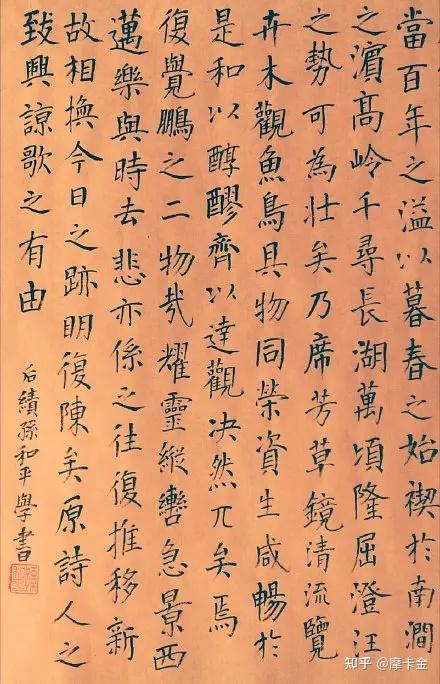 當百年之溢以暮春之始禊於南澗
之濱高岭千尋長湖萬頃隆屈澄汪
之勢可為壯矣乃席芳草鏡清流覽
卉木觀魚鳥具物同榮資生咸暢於
是和以醇醪齊以達觀决然兀矣焉
復覺鵬之二物哉耀靈縱轡急景西
邁樂與時去悲亦係之往復推移新
故相換今日之跡明復陳矣原詩人之
致興諒歌之有由
后績孫和平學書
知乎 @摩卡金